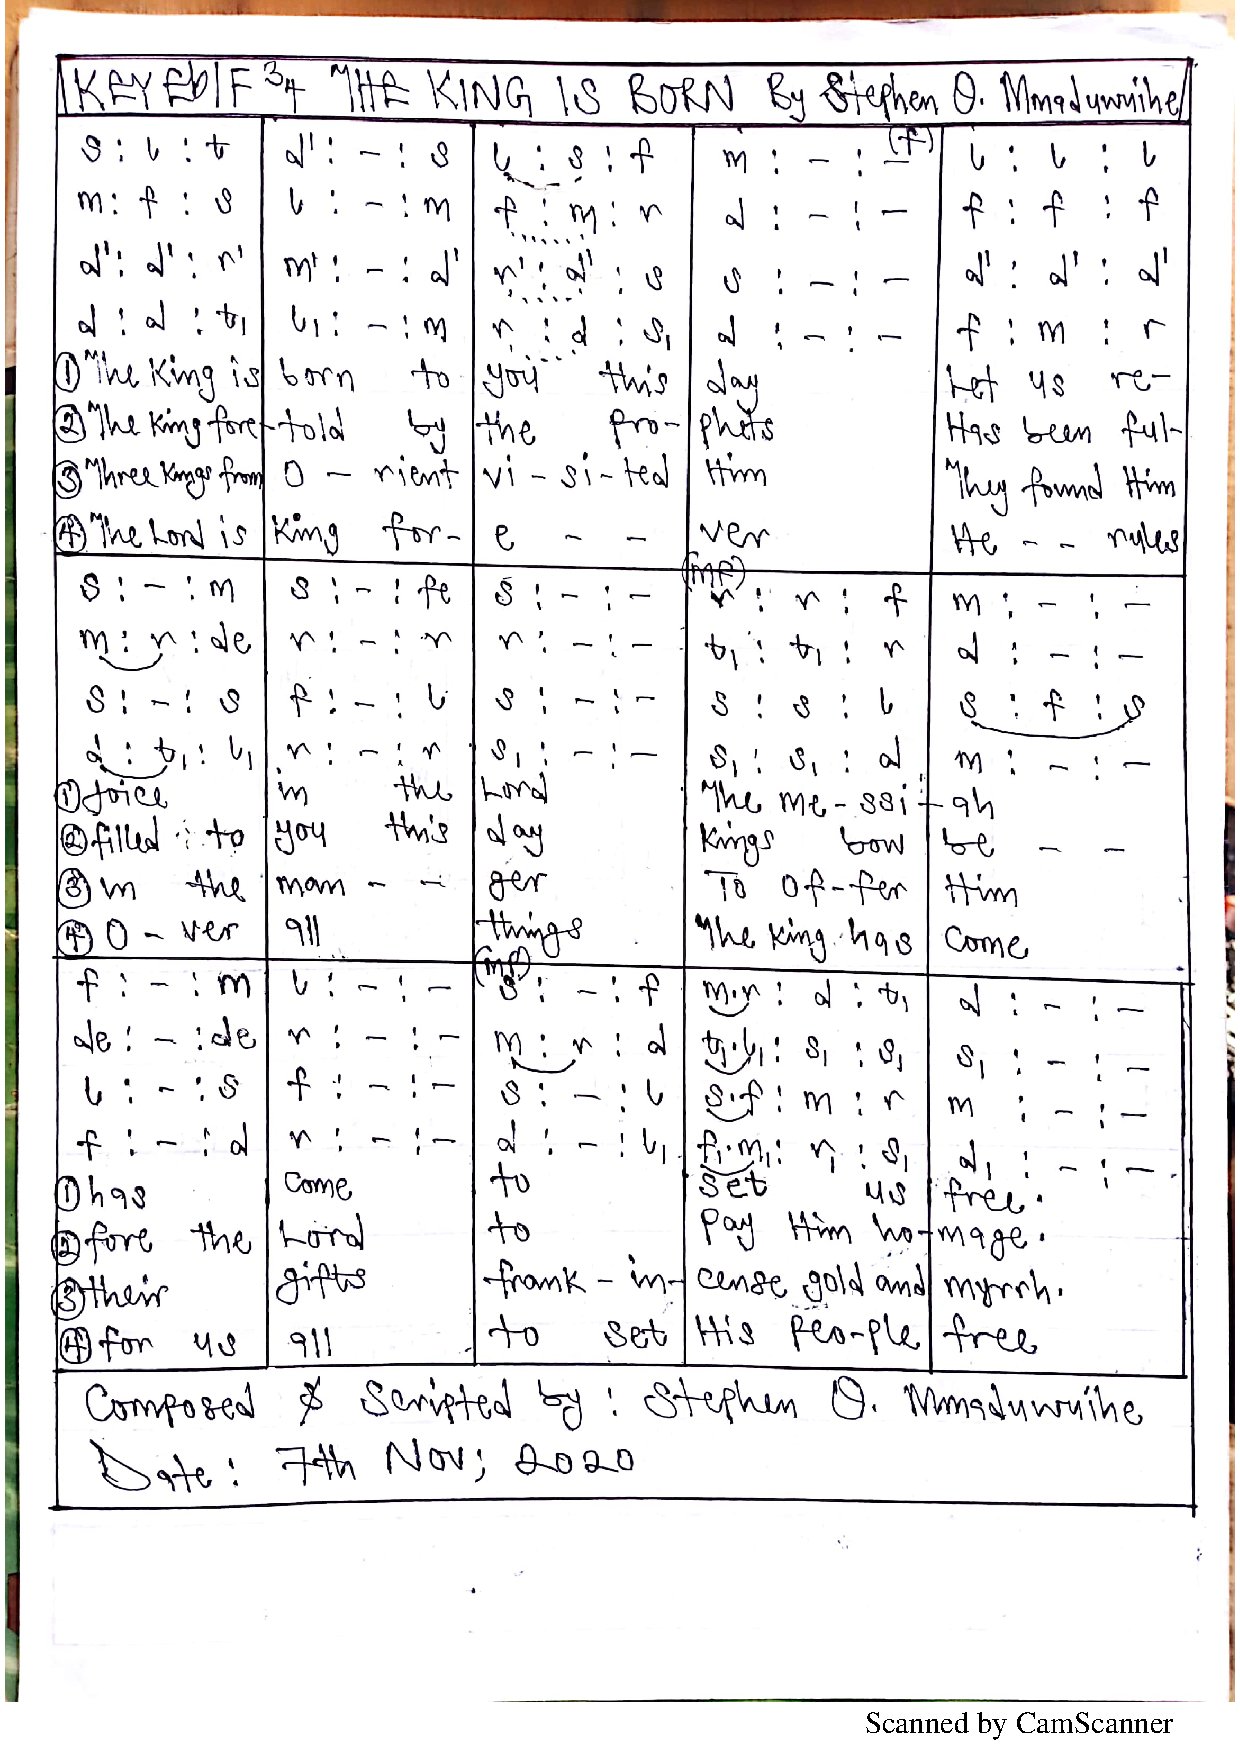 KEY E♭/F 3/4 THE KING IS BORN By Stephen O. Mmaduwuihe
s : l : t | d' : - : s | l : s : f | m : - : - (f) | l : l : l
m : f : s | l : - : m | f : m : r | d : - : - | f : f : f
d' : d' : r' | m' : - : d' | r' : d' : s | s : - : - | d' : d' : d'
d : d : t₁ | l₁ : - : m | r : d : s₁ | d : - : - | f : m : r
① The King is | born to | you this | day | Let us re-
② The King fore- | told by | the pro- | phets | Has been ful-
③ Three Kings from | O - rient | vi - si - ted | Him | They found Him
④ The Lord is | King for- | e - - | ver | He - - rules
(MF)
s : - : m | s : - : fe | s : - : - | r : r : f | m : - : -
m : r : de | r : - : r | r : - : - | t₁ : t₁ : r | d : - : -
s : - : s | f : - : l | s : - : - | s : s : l | s : f : s
d : t₁ : l₁ | r : - : r | s₁ : - : - | s₁ : s₁ : d | m : - : -
① joice | in the | Lord | The me - ssi - | ah
② filled to | you this | day | Kings bow | be - -
③ in the | man - - | ger | To Of - fer | Him
④ O - ver | all | things | The King has | Come
(MF)
f : - : m | l : - : - | s : - : f | m.r : d : t₁ | d : - : -
de : - : de | r : - : - | m : r : d | t₁.l₁ : s₁ : s₁ | s₁ : - : -
l : - : s | f : - : - | s : - : l | s.f : m : r | m : - : -
f : - : d | r : - : - | d : - : l₁ | f₁.m₁ : r₁ : s₁ | d₁ : - : -
① has | Come | to | set us | free.
② fore the | Lord | to | Pay Him ho- | mage.
③ their | gifts | frank - in- | cense gold and | myrrh.
④ for us | all | to set | His Peo - ple | free
Composed & Scripted by : Stephen O. Mmaduwuihe
Date : 7th Nov; 2020
Scanned by CamScanner